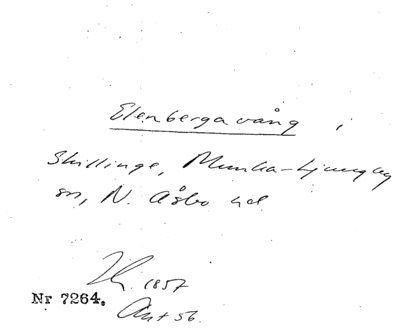 Elenberga vång i
Skillinge, Munka-Ljungby
sn, N. Åsbo hd
1857
Nr 7264.
Akt 56.